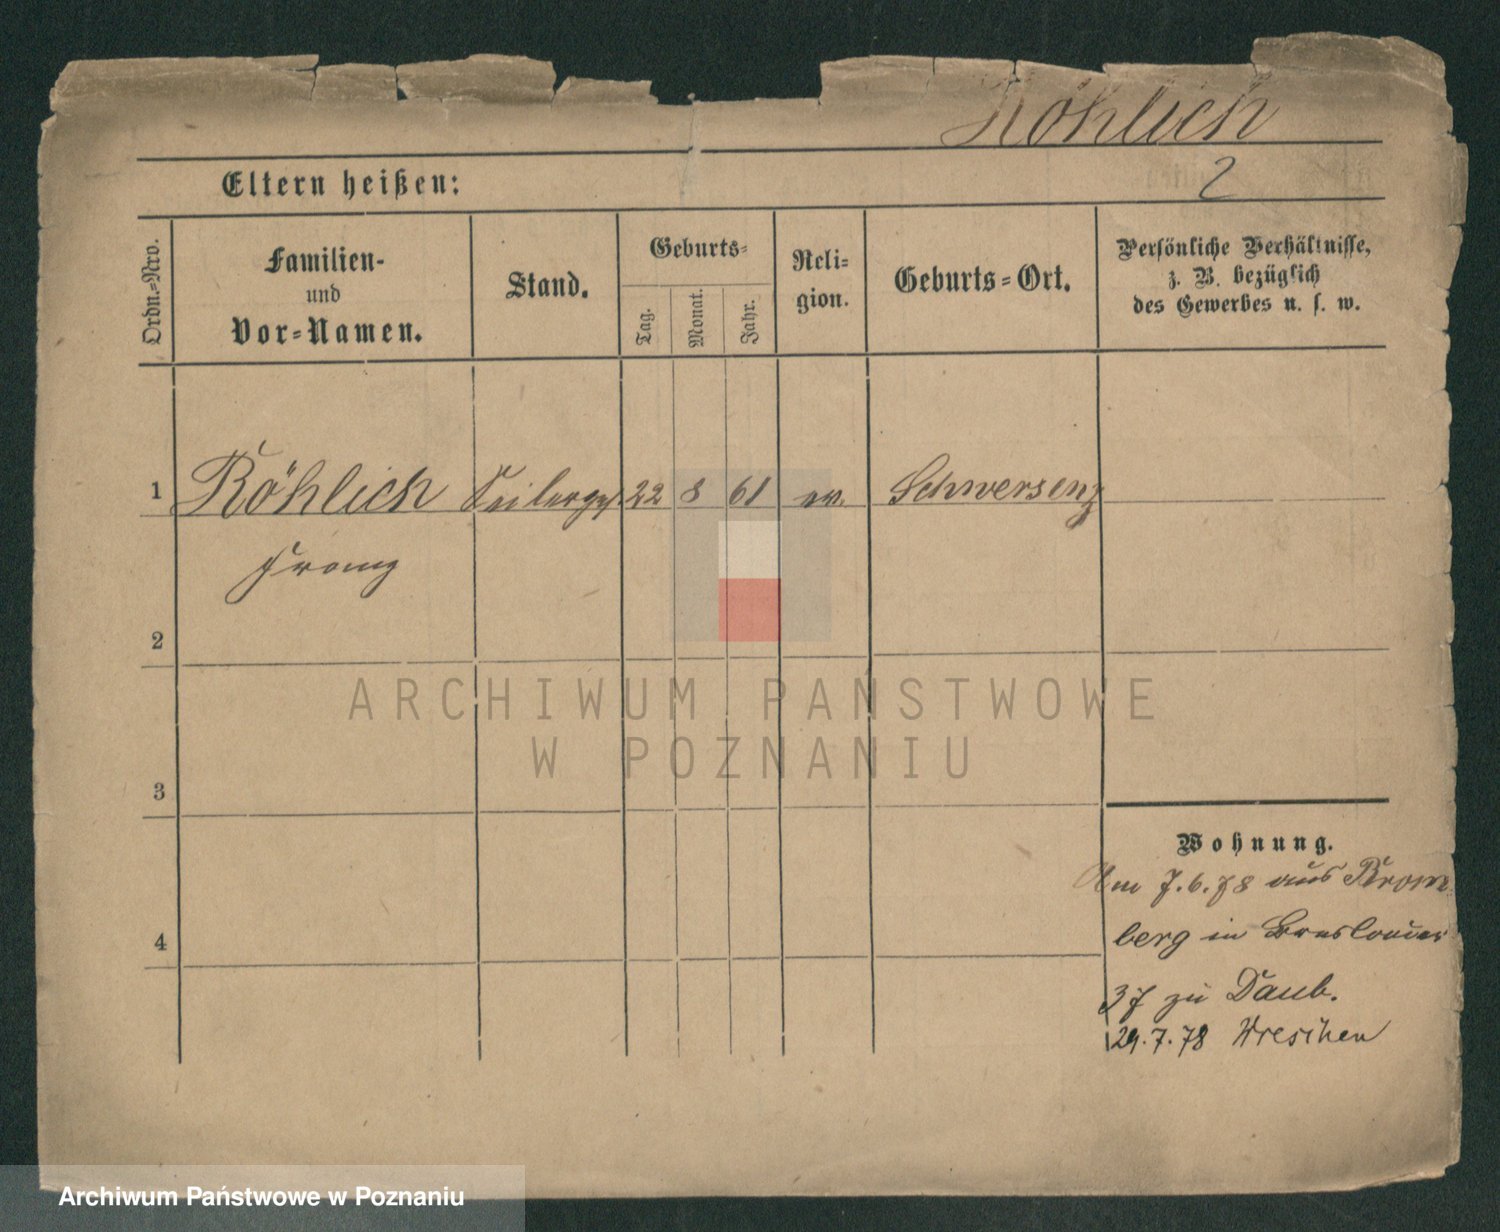 Röhlich
Eltern heißen:
2
Ordn.=Nro.
Familien-
und
Vor=Namen.
Stand.
Geburts=
Tag.
Monat.
Jahr.
Reli=
gion.
Geburts=Ort.
Persönliche Verhältnisse,
z. B. bezüglich
des Gewerbes u. s. w.
1 Röhlich Seilerges. 22 8 61 ev. Schwersenz
Franz
2
ARCHIWUM PAŃSTWOWE
W POZNANIU
3
Wohnung.
Am 7.6.78 aus Brom
berg in Breslauer
4
37 zu Daub.
29.7.78 Wreschen
Archiwum Państwowe w Poznaniu